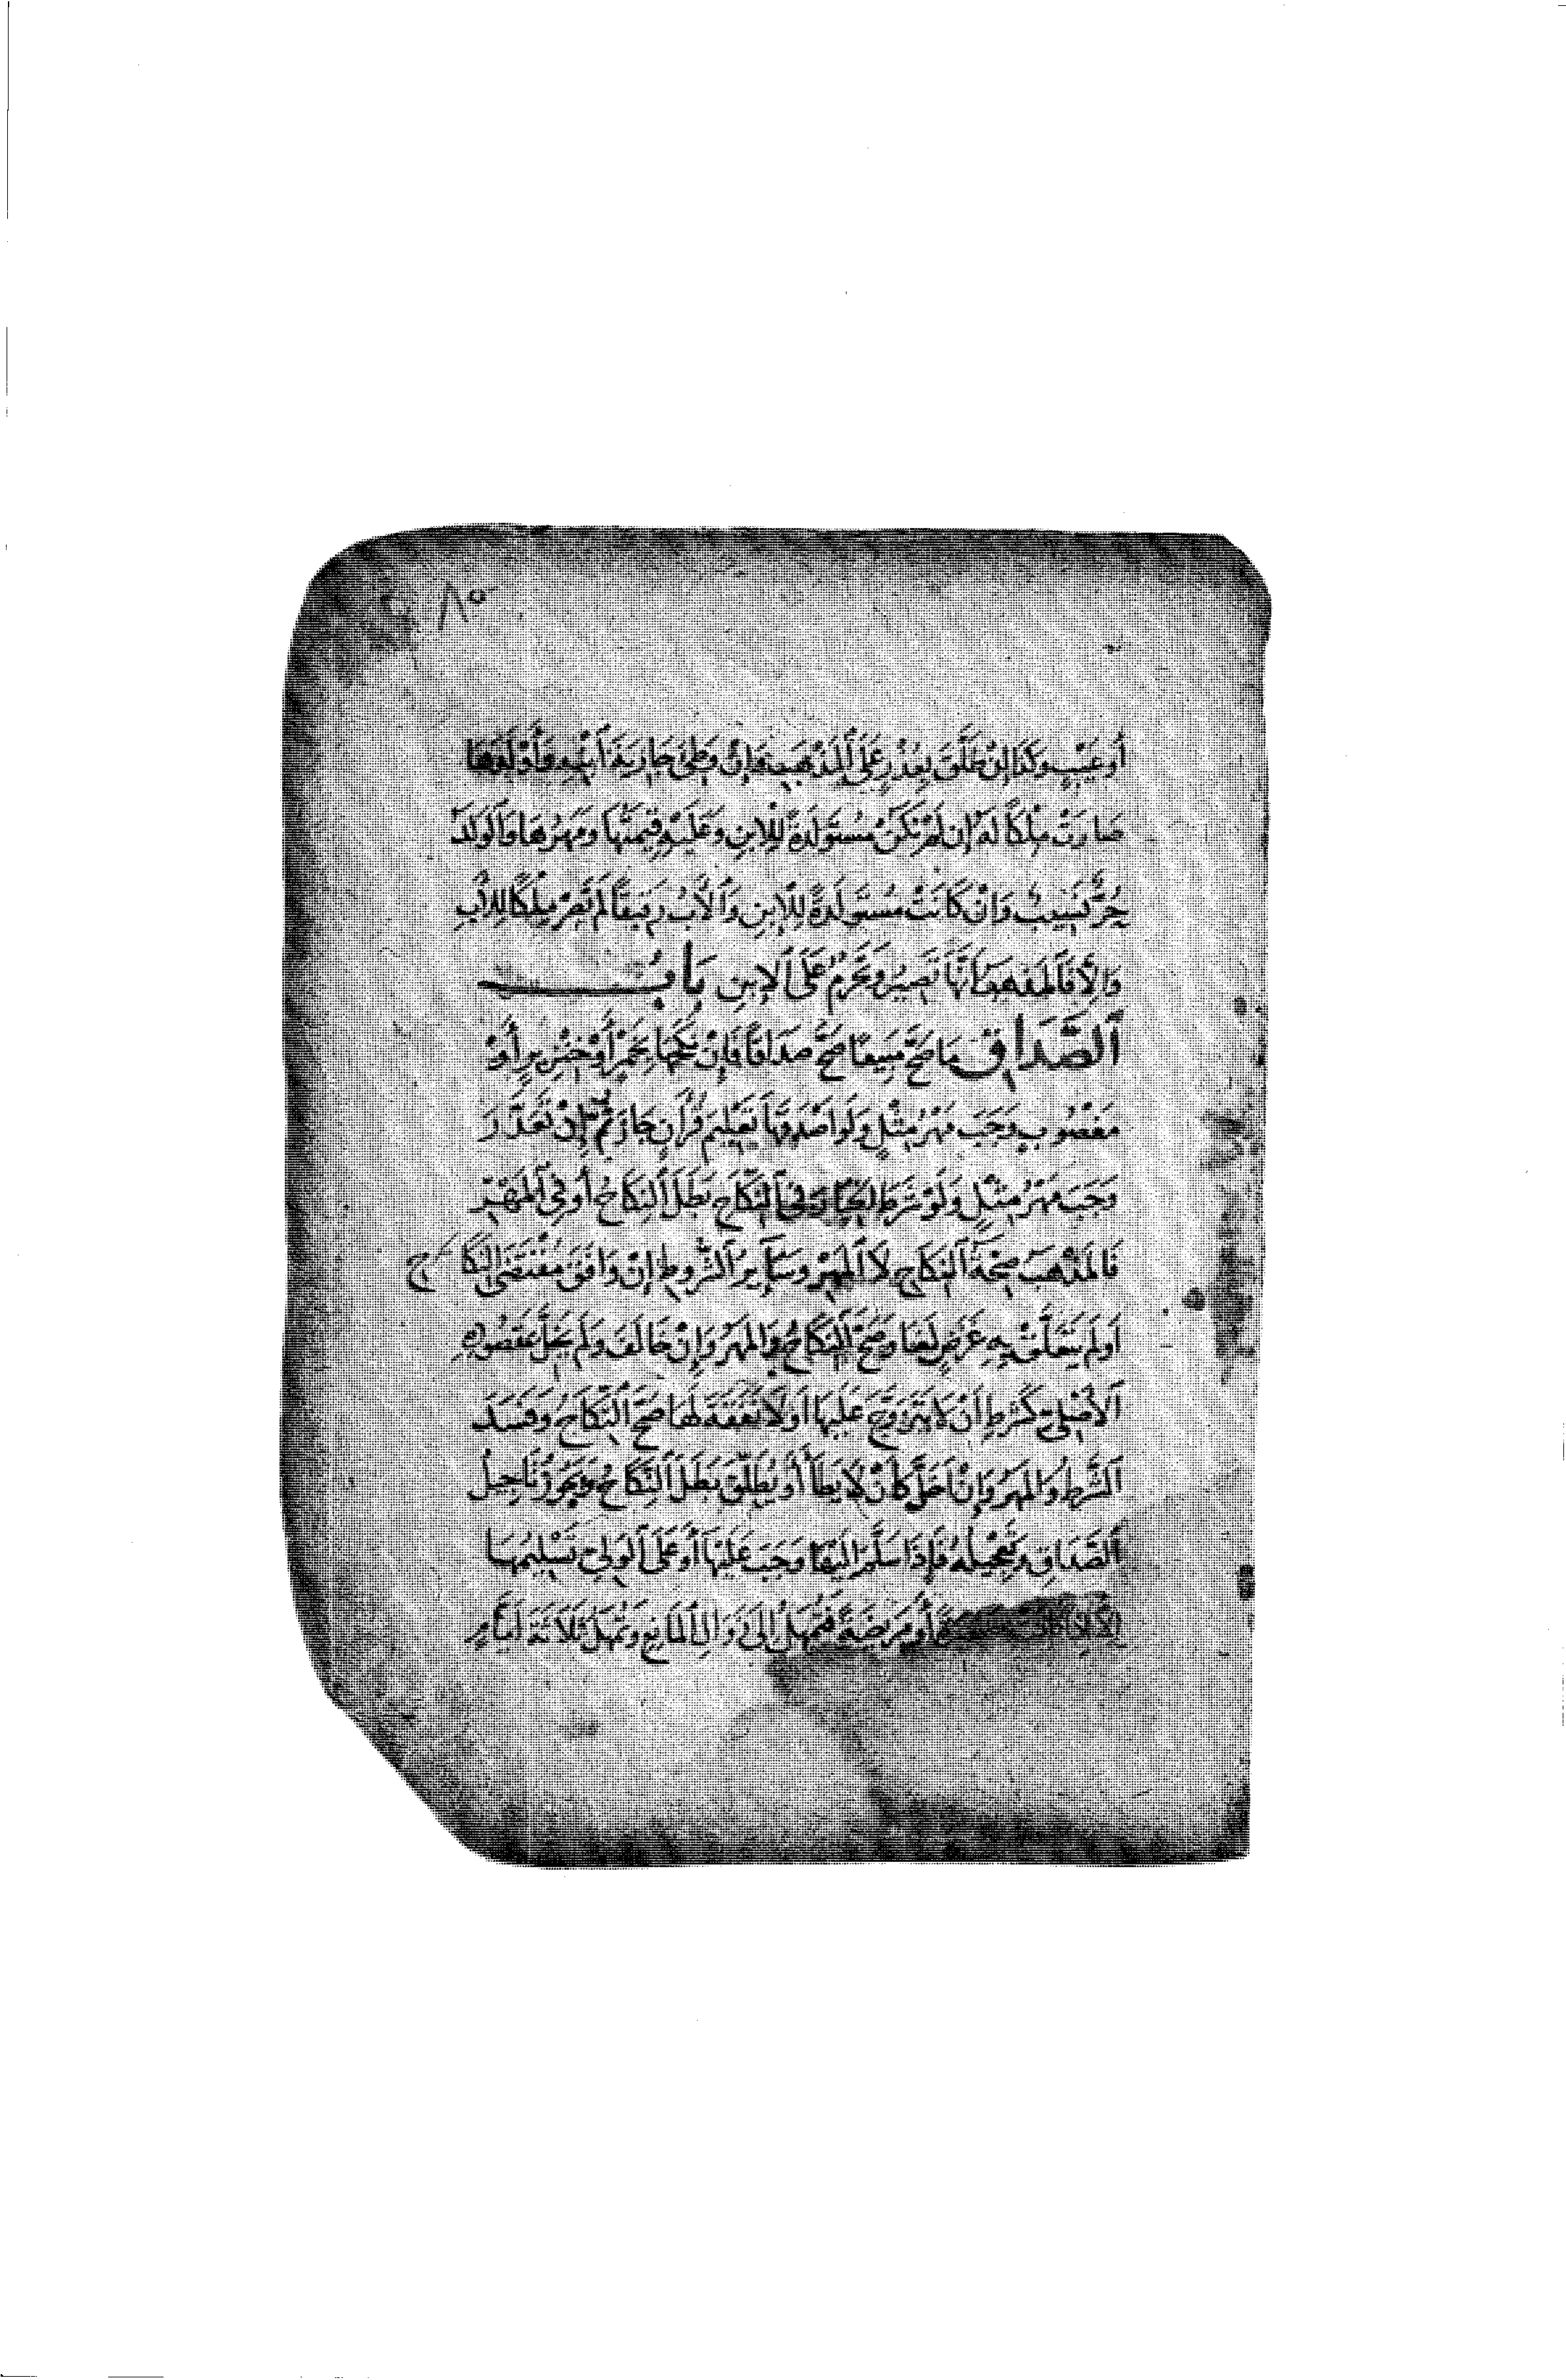 ٨٥
أَوْ عَيْبٍ وَكَذَا إِنْ طَلَّقَ بِعُذْرٍ عَلَى ٱلْمَذْهَبِ وَإِنْ وَطِئَ جَارِيَةَ ٱبْنِهِ فَأَوْلَدَهَا
صَارَتْ مِلْكًا لَهُ إِن لَمْ تَكُنْ مُسْتَوْلَدَةً لِلِابْنِ وَعَلَيْهِ قِيمَتُهَا وَمَهْرُهَا وَٱلْوَلَدُ
حُرٌّ نَسِيبٌ وَإِنْ كَانَتْ مُسْتَوْلَدَةً لِلِابْنِ وَٱلْأَبُ رَقِيقًا لَمْ تَصِرْ مِلْكًا لِلْأَبِ
وَإِلَّا فَٱلْمَذْهَبُ أَنَّهَا تَصِيرُ وَتَحْرُمُ عَلَى ٱلِابْنِ بَابُ
ٱلصَّدَاقِ مَا صَحَّ مَبِيعًا صَحَّ صَدَاقًا فَإِنْ نَكَحَهَا بِخَمْرٍ أَوْ خِنْزِيرٍ أَوْ
مَغْصُوبٍ وَجَبَ مَهْرُ مِثْلٍ وَلَوْ أَصْدَقَهَا تَعْلِيمَ قُرْآنٍ جَازَ ثُمَّ إِنْ تَعَذَّرَ
وَجَبَ مَهْرُ مِثْلٍ وَلَوْ شَرَطَ الْخِيَارَ فِي ٱلنِّكَاحِ بَطَلَ ٱلنِّكَاحُ أَوْ فِي ٱلْمَهْرِ
فَٱلْمَذْهَبُ صِحَّةُ ٱلنِّكَاحِ لَا ٱلْمَهْرِ وَسَآئِرُ ٱلشُّرُوطِ إِنْ وَافَقَ مُقْتَضَى ٱلنِّكَاحِ
أَوْ لَمْ يَتَعَلَّقْ بِهِ غَرَضٌ لَغَا وَصَحَّ ٱلنِّكَاحُ وَٱلْمَهْرُ وَإِنْ خَالَفَ وَلَمْ يُخِلَّ بِمَقْصُودِهِ
ٱلْأَصْلِيِّ كَشَرْطِ أَنْ لَا يَتَزَوَّجَ عَلَيْهَا أَوْ لَا نَفَقَةَ لَهَا صَحَّ ٱلنِّكَاحُ وَفَسَدَ
ٱلشَّرْطُ وَٱلْمَهْرُ وَإِنْ أَخَلَّ كَأَنْ لَا يَطَأَ أَوْ يُطَلِّقَ بَطَلَ ٱلنِّكَاحُ وَيَجُوزُ تَأْجِيلُ
ٱلصَّدَاقِ وَتَعْجِيلُهُ فَإِذَا سَلَّمَ إِلَيْهَا وَجَبَ عَلَيْهَا أَوْ عَلَى ٱلْوَلِيِّ تَسْلِيمُهَا
إِلَّا أَوْ مَرِيضَةً فَتُمْهَلُ إِلَى زَوَالِ ٱلْمَانِعِ وَتُمْهَلُ ثَلَاثَةَ أَيَّامٍ